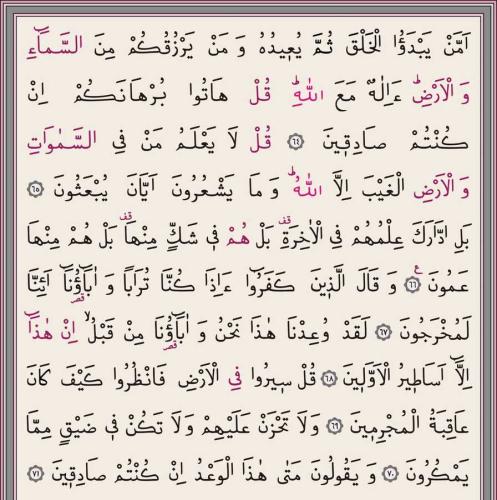 اَمَّنْ يَبْدَؤُا الْخَلْقَ ثُمَّ يُعٖيدُهُ وَ مَنْ يَرْزُقُكُمْ مِنَ السَّمَٓاءِ
وَ الْاَرْضِؕ ءَاِلٰهٌ مَعَ اللّٰهِؕ قُلْ هَاتُوا بُرْهَانَكُمْ اِنْ
كُنْتُمْ صَادِقٖينَ ﴿٦٤﴾ قُلْ لَا يَعْلَمُ مَنْ فِي السَّمٰوَاتِ
وَ الْاَرْضِ الْغَيْبَ اِلَّا اللّٰهُؕ وَ مَا يَشْعُرُونَ اَيَّانَ يُبْعَثُونَ ﴿٦٥﴾
بَلِ ادَّارَكَ عِلْمُهُمْ فِي الْاٰخِرَةِࣞ بَلْ هُمْ فٖي شَكٍّ مِنْهَاࣞ بَلْ هُمْ مِنْهَا
عَمُونَ ﴿٦٦﴾ وَ قَالَ الَّذٖينَ كَفَرُٓوا ءَاِذَا كُنَّا تُرَابًا وَ اٰبَٓاؤُ۬نَٓا اَئِنَّا
لَمُخْرَجُونَ ﴿٦٧﴾ لَقَدْ وُعِدْنَا هٰذَا نَحْنُ وَ اٰبَٓاؤُ۬نَا مِنْ قَبْلُۙ اِنْ هٰذَٓا
اِلَّٓا اَسَاطٖيرُ الْاَوَّلٖينَ ﴿٦٨﴾ قُلْ سٖيرُوا فِي الْاَرْضِ فَانْظُرُوا كَيْفَ كَانَ
عَاقِبَةُ الْمُجْرِمٖينَ ﴿٦٩﴾ وَلَا تَحْزَنْ عَلَيْهِمْ وَلَا تَكُنْ فٖي ضَيْقٍ مِمَّا
يَمْكُرُونَ ﴿٧٠﴾ وَ يَقُولُونَ مَتٰى هٰذَا الْوَعْدُ اِنْ كُنْتُمْ صَادِقٖينَ ﴿٧١﴾